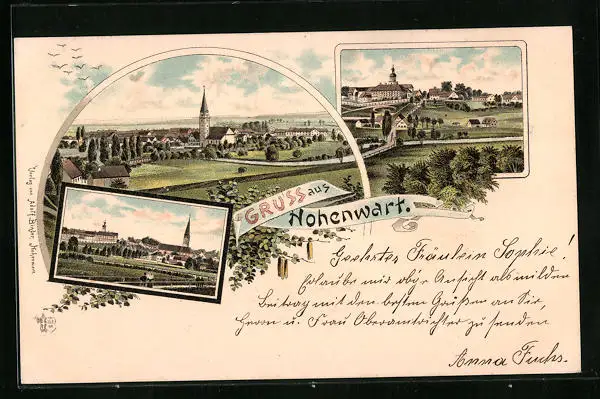 GRUSS aus
Hohenwart.
Geehrtes Fräulein Sophie!
Erlaube mir obige Ansicht als milden
Beitrag mit den besten Grüßen an Sie,
Herrn u. Frau Oberamtrichter zu senden
Anna Fuchs.
Verlag von Adolf